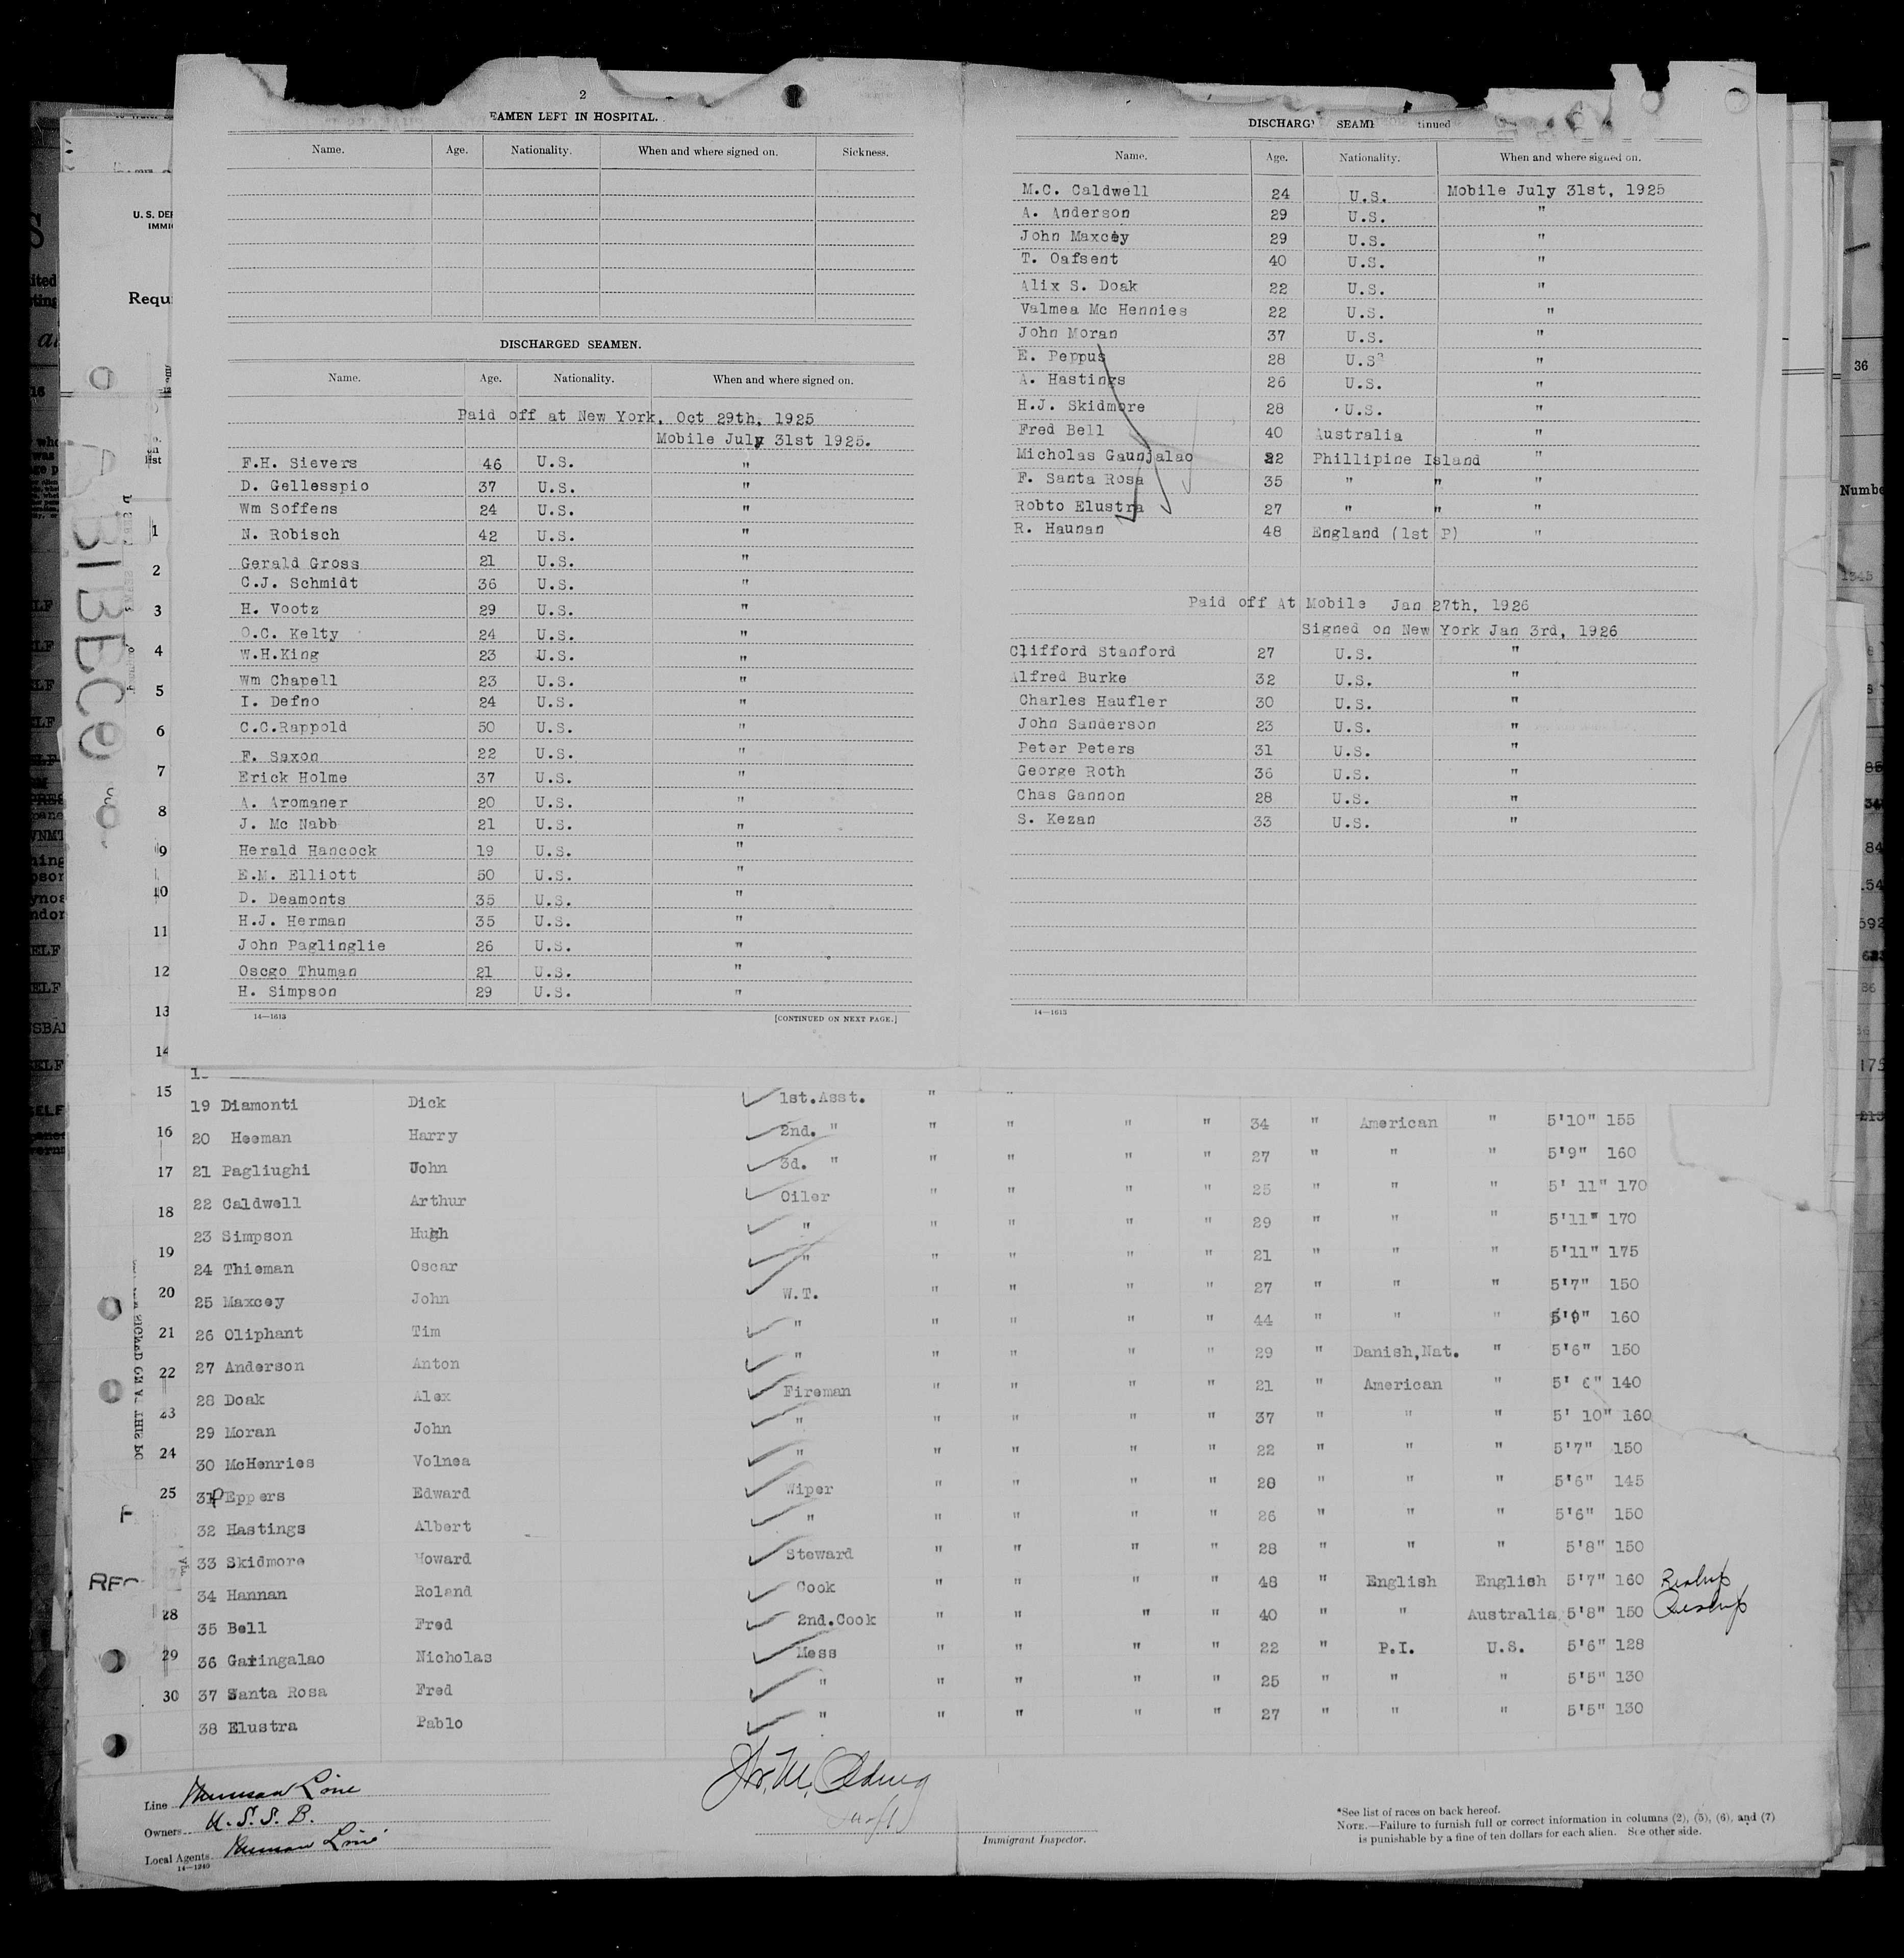 2
EAMEN LEFT IN HOSPITAL.
Name. Age. Nationality. When and where signed on. Sickness.
DISCHARGED SEAMEN.
Name. Age. Nationality. When and where signed on.
Paid off at New York, Oct 29th, 1925
Mobile July 31st 1925.
F.H. Sievers 46 U.S. "
D. Gellesspio 37 U.S. "
Wm Soffens 24 U.S. "
N. Robisch 42 U.S. "
Gerald Gross 21 U.S. "
C.J. Schmidt 36 U.S. "
H. Vootz 29 U.S. "
O.C. Kelty 24 U.S. "
W.H.King 23 U.S. "
Wm Chapell 23 U.S. "
I. Defno 24 U.S. "
C.C.Rappold 50 U.S. "
F. Saxon 22 U.S. "
Erick Holme 37 U.S. "
A. Aromaner 20 U.S. "
J. Mc Nabb 21 U.S. "
Herald Hancock 19 U.S. "
E.M. Elliott 50 U.S. "
D. Deamonts 35 U.S. "
H.J. Herman 35 U.S. "
John Paglinglie 26 U.S. "
Oscgo Thuman 21 U.S. "
H. Simpson 29 U.S. "
14—1613 [CONTINUED ON NEXT PAGE.]
DISCHARG SEAM tinued
Name. Age. Nationality. When and where signed on.
M.C. Caldwell 24 U.S. Mobile July 31st, 1925
A. Anderson 29 U.S. "
John Maxcey 29 U.S. "
T. Oafsent 40 U.S. "
Alix S. Doak 22 U.S. "
Valmea Mc Hennies 22 U.S. "
John Moran 37 U.S. "
E. Peppus 28 U.S? "
A. Hastings 26 U.S. "
H.J. Skidmore 28 U.S. "
Fred Bell 40 Australia "
Micholas Gaunjalao 22 Phillipine Island "
F. Santa Rosa 35 " " "
Robto Elustra 27 " " "
R. Haunan 48 England (1st P) "
Paid off At Mobile Jan 27th, 1926
Signed on New York Jan 3rd, 1926
Clifford Stanford 27 U.S. "
Alfred Burke 32 U.S. "
Charles Haufler 30 U.S. "
John Sanderson 23 U.S. "
Peter Peters 31 U.S. "
George Roth 36 U.S. "
Chas Gannon 28 U.S. "
S. Kezan 33 U.S. "
14—1613
U. S. DEP
IMMI
Requi
1
2
3
4
5
6
7
8
9
10
11
12
13
14
15
16
17
18
19
20
21
22
23
24
25
28
29
30
36
Numbe
19 Diamonti Dick 1st.Asst. " "
20 Heeman Harry 2nd. " " " " " 34 " American " 5'10" 155
21 Pagliughi John 3d. " " " " " 27 " " " 5'9" 160
22 Caldwell Arthur Oiler " " " " 25 " " " 5' 11" 170
23 Simpson Hugh " " " " " 29 " " " 5'11" 170
24 Thieman Oscar " " " " " 21 " " " 5'11" 175
25 Maxcey John W.T. " " " " 27 " " " 5'7" 150
26 Oliphant Tim " " " " " 44 " " " 5'9" 160
27 Anderson Anton " " " " " 29 " Danish,Nat. " 5'6" 150
28 Doak Alex Fireman " " " " 21 " American " 5' 6" 140
29 Moran John " " " " " 37 " " " 5' 10" 160
30 McHenries Volnea " " " " " 22 " " " 5'7" 150
31 PEppers Edward Wiper " " " " 28 " " " 5'6" 145
32 Hastings Albert " " " " " 26 " " " 5'6" 150
33 Skidmore Howard Steward " " " " 28 " " " 5'8" 150
34 Hannan Roland Cook " " " " 48 " English English 5'7" 160
35 Bell Fred 2nd.Cook " " " " 40 " " Australia 5'8" 150
36 Garingalao Nicholas Mess " " " " 22 " P.I. U.S. 5'6" 128
37 Santa Rosa Fred " " " " " 25 " " " 5'5" 130
38 Elustra Pablo " " " " " 27 " " " 5'5" 130
Line Munson Line
Owners U.S.S.B.
Local Agents Munson Line
14—1240
Immigrant Inspector.
*See list of races on back hereof.
NOTE.—Failure to furnish full or correct information in columns (2), (5), (6), and (7)
is punishable by a fine of ten dollars for each alien. See other side.